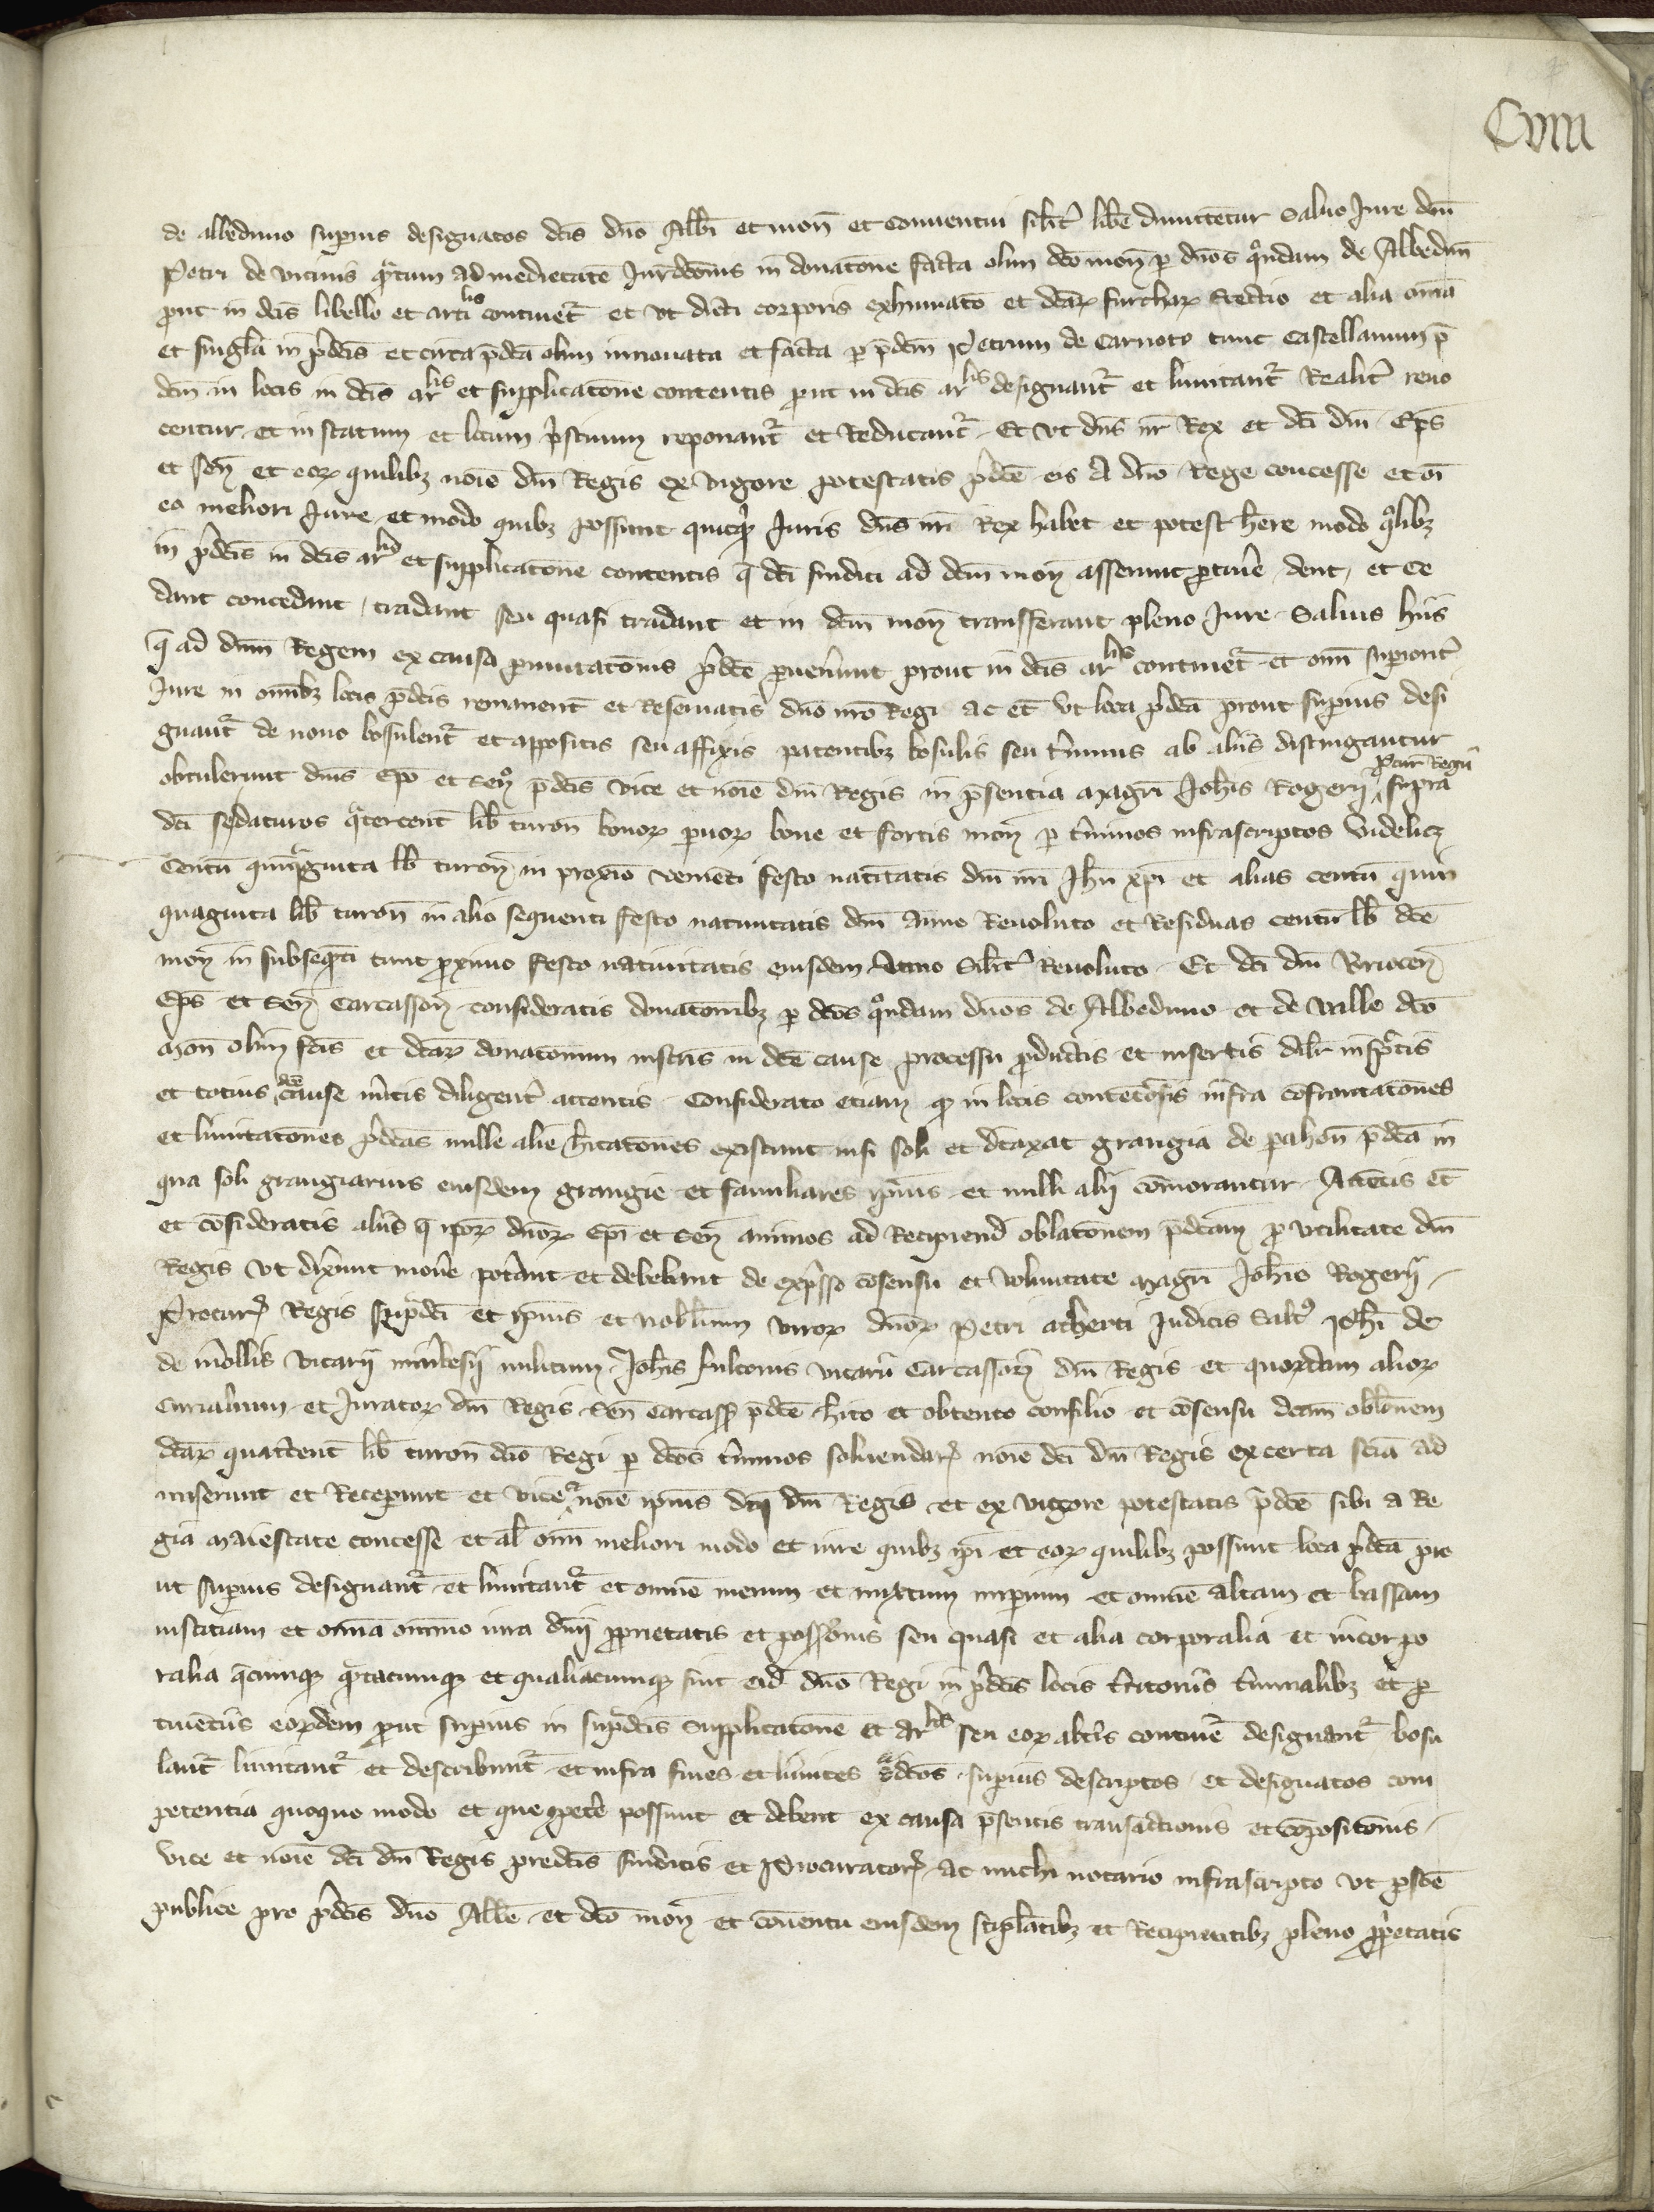 CVIII
de albeduno superius designatos dc̄is dn̄o Abb̄i et mon̄ et Conuentui silit̄ lib̄e dimittētur Saluo Jure dn̄i
Petri de vicinis q̄tum ad medietatē Jur̄dc̄onis in donatōne facta olim dc̄o mon̄ p̄ dn̄os qōndam de Albedun̄
prut in dc̄is libello et arti^lis continet̄ et vt dicti corporis exhumatō et dc̄ar̄ furchar̄ erectio et alia om̄ia
et singl̄a in p̄dc̄is et circa p̄dc̄a olim innouata et facta p̄ p̄dc̄m Petrum de Carnoto tunc Castellanum p̄
dc̄m in locis in dc̄is ar^lis et supplicatōne contentis prut in dc̄is ar^lis designant̄ et limitant̄ Realit̄ reuo
centur et in statum et locum p̄stinum reponant̄ et Reducant̄ Et vt dn̄s nr̄ Rex et dc̄i dn̄i Ep̄s
et sen̄ et eor̄ quilibꝫ noīe dn̄i Regis ex vigore potestatis p̄dc̄e eis A dn̄o Rege concesse et om̄i
eo meliori Jure et modo quibꝫ possunt quicq̄d Juris dn̄s nr̄ Rex habet et potest h̄ere modo q̄libꝫ
in p̄dc̄is in dc̄is ar^lis et supplicatōne contentis q̄ dc̄i sindici ad dc̄m mon̄ asserunt p̄tinē dent et ce
dant concedant tradant seu quasi tradant et in dc̄m mon̄ transferant pleno Jure Saluis hiis
q̄ ad dn̄m Regem ex causa p̄mutatōnis p̄dc̄e p̄uenerunt prout in dc̄is ar^lis continet̄ et om̄i superiorit̄
Jure in omībꝫ locis p̄dc̄is remanent̄ et Reseruatis dn̄o nr̄o Regi ac et̄ vt loca p̄dc̄a prout superius desi
gnant̄ de nouo bosulent̄ et appositis seu affixis patentibꝫ bosulis seu t̄minis ab aliis distingantur
obtulerunt dn̄is Ep̄o et Sen̄o p̄dc̄is vice et noīe dn̄i Regis in p̄sentia magr̄i Joh̄is Rogerij ^p̄cur̄ Regii supra
dc̄i se daturos q̄tercent̄ lib̄ turon̄ bonor̄ p̄uor̄ bone et fortis mon̄ p̄ t̄minos infrascriptos videlicꝫ
Centū quinq̄ginta lib̄ turon̄ in proxīo venient̄i festo natītatis dn̄i nr̄i Jh̄u xp̄i et alias centū quin
quaginta lib̄ turon̄ in alio sequenti festo natiuitatis dn̄i Anno Reuoluto et Residuas centū lib̄ dc̄e
mon̄ in subseq̄nti tunc proximo festo natiuitatis eiusdem Anno Silit̄ Reuoluto Et dc̄i dn̄i Briocen̄
Ep̄s et Sen̄ Carcasson̄ consideratis donatōnibꝫ p̄ dc̄os qōndam dn̄os de Albeduno et de valle dc̄o
mon̄ olim fc̄is et dc̄ar̄ donationum instr̄is in dc̄e cause processu p̄ductis et insertis dilr̄ inspc̄tis
et totius ^dc̄e cause m̄itis diligent̄ attentis Considerato etiam qd̄ in locis contēcōsis infra cōfrontatōnes
et limitatōnes p̄dc̄as nulle alie h̄itatōnes existunt nisi soli et dt̄axat grangia de pahon̄ p̄dc̄a in
qua soli grangiarius eiusdem grangie et familiares ip̄ius et nulli alij cōmorantur Attentis et̄
et cōsideratis aliis q̄ ip̄or̄ dn̄or̄ Ep̄i et Sen̄ animos ad Recipiend̄ oblatōnem p̄dc̄am p̄ vtilitate dn̄i
Regis vt dixerunt mouē potāuit et debebāt de exp̄sso cōsensu et voluntate magr̄i Joh̄is Rogerij
Procur̄ Regis sup̄dc̄i et ip̄ius et nobilium viror̄ dn̄or̄ Petri atherti Judicis Salt̄ Joh̄i de
de mollis vicarij minerbesij militum Joh̄is fulconis vicarii Carcasson̄ dn̄i Regis et quor̄dam alior̄
Curialium et Jurator̄ dn̄i Regis Sen̄ Carcass̄ p̄dc̄e h̄ito et obtento consilio et cōsensu dc̄am oblōnem
dc̄ar̄ quat̄cent̄ lib̄ turon̄ dc̄o Regi p̄ dc̄os t̄minos soluendar̄ noīe dc̄i dn̄i Regis ex certa scīa ad
miserunt et Receperunt et vice ^et noīe ip̄ius dc̄i dn̄i Regis et ex vigore potestatis p̄dc̄e sibi a Re
gia Maiestate concesse et al̄ om̄i meliori modo et iure quibꝫ ip̄i et eor̄ quilibꝫ possunt loca p̄dc̄a pro
ut superius designant̄ et limitant̄ et omnē merum et mixtum imperium et omnē altam et bassam
iustitiam et om̄ia omīno iura dn̄ij p̄prietatis et possessōnis seu quasi et alia corporalia et incorpo
ralia q̄cumqꝫ q̄tacumqꝫ et qualiacumqꝫ sint eid̄ dn̄o Regi in p̄dc̄is locis t̄ritoriis t̄minalibꝫ et p̄
tinēciis eor̄dem prut superius in sup̄dc̄is Supplicatōne et Ar^lis seu eor̄ alt̄is continē designant̄ bosu
lant̄ limitant̄ et describunt̄ et infra fines et limites dc̄os superius descriptos et designatos com
petentia quoquo modo et que 9petē possunt et debent ex causa p̄sentis transactionis et cōpositōnis
Vice et noīe dc̄i dn̄i Regis predc̄is sindicis et Procurator̄ ac michi notario infrascripto vt p̄sōe
publice pro p̄dc̄is dn̄o Abb̄e et dc̄o mon̄ et cōuentu eiusdem stipl̄atibꝫ et Recipientibꝫ pleno p̄prietatis